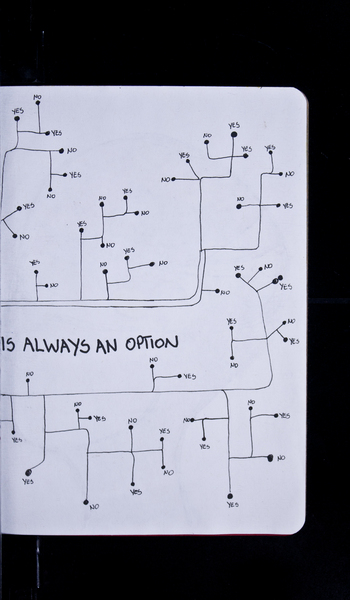 NO
YES
YES
NO
YES
NO
YES
NO
YES
YES
NO
YES
NO
YES
NO
NO
YES
YES
NO
NO
YES
YES
NO
NO
YES
NO
YES
NO
YES
NO
YES
NO
YES
NO
NO
YES
NO
YES
NO
YES
IS ALWAYS AN OPTION
NO
NO
YES
YES
YES
NO
YES
NO
NO
YES
YES
NO
YES
NO
YES
NO
YES
NO
YES